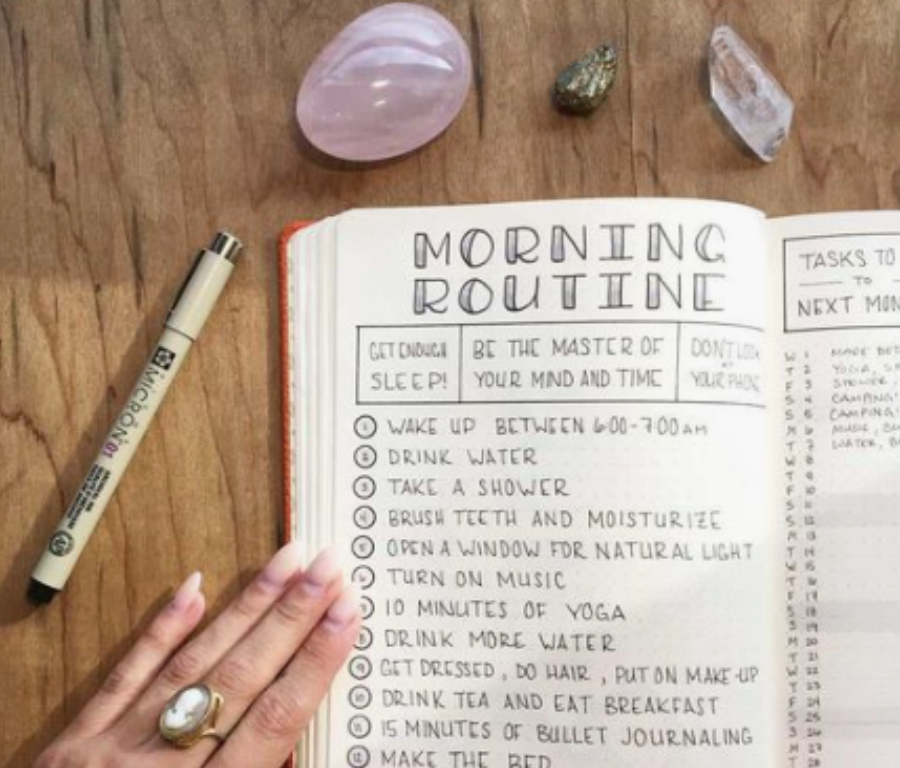 MICRON 01
MORNING
ROUTINE
GET ENOUGH
SLEEP!
BE THE MASTER OF
YOUR MIND AND TIME
DON'T LOOK
YOUR PHONE
1 WAKE UP BETWEEN 6:00-7:00 AM
2 DRINK WATER
3 TAKE A SHOWER
4 BRUSH TEETH AND MOISTURIZE
5 OPEN A WINDOW FOR NATURAL LIGHT
6 TURN ON MUSIC
10 MINUTES OF YOGA
8 DRINK MORE WATER
9 GET DRESSED, DO HAIR, PUT ON MAKE-UP
10 DRINK TEA AND EAT BREAKFAST
11 15 MINUTES OF BULLET JOURNALING
12 MAKE THE BED
TASKS TO
TO
NEXT MON
W 1 MAKE BED
T 2 YOGA, S
F 3 SHOWER,
S 4 CAMPING!
S 5 CAMPING!
M 6 MUSIC,
T 7 WATER,
W 8
T 9
F 10
S 11
S 12
M 13
T 14
W 15
T 16
F 17
S 18
S 19
M 20
T 21
W 22
T 23
F 24
S 25
S 26
M 27
T 28